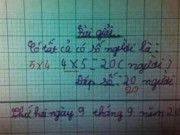 Bài giải
Có tất cả có số người là:
5x4 4 x 5 = 20 ( người )
Đáp số: 20 người
20
Thứ ba ngày 9 tháng 9 năm 20